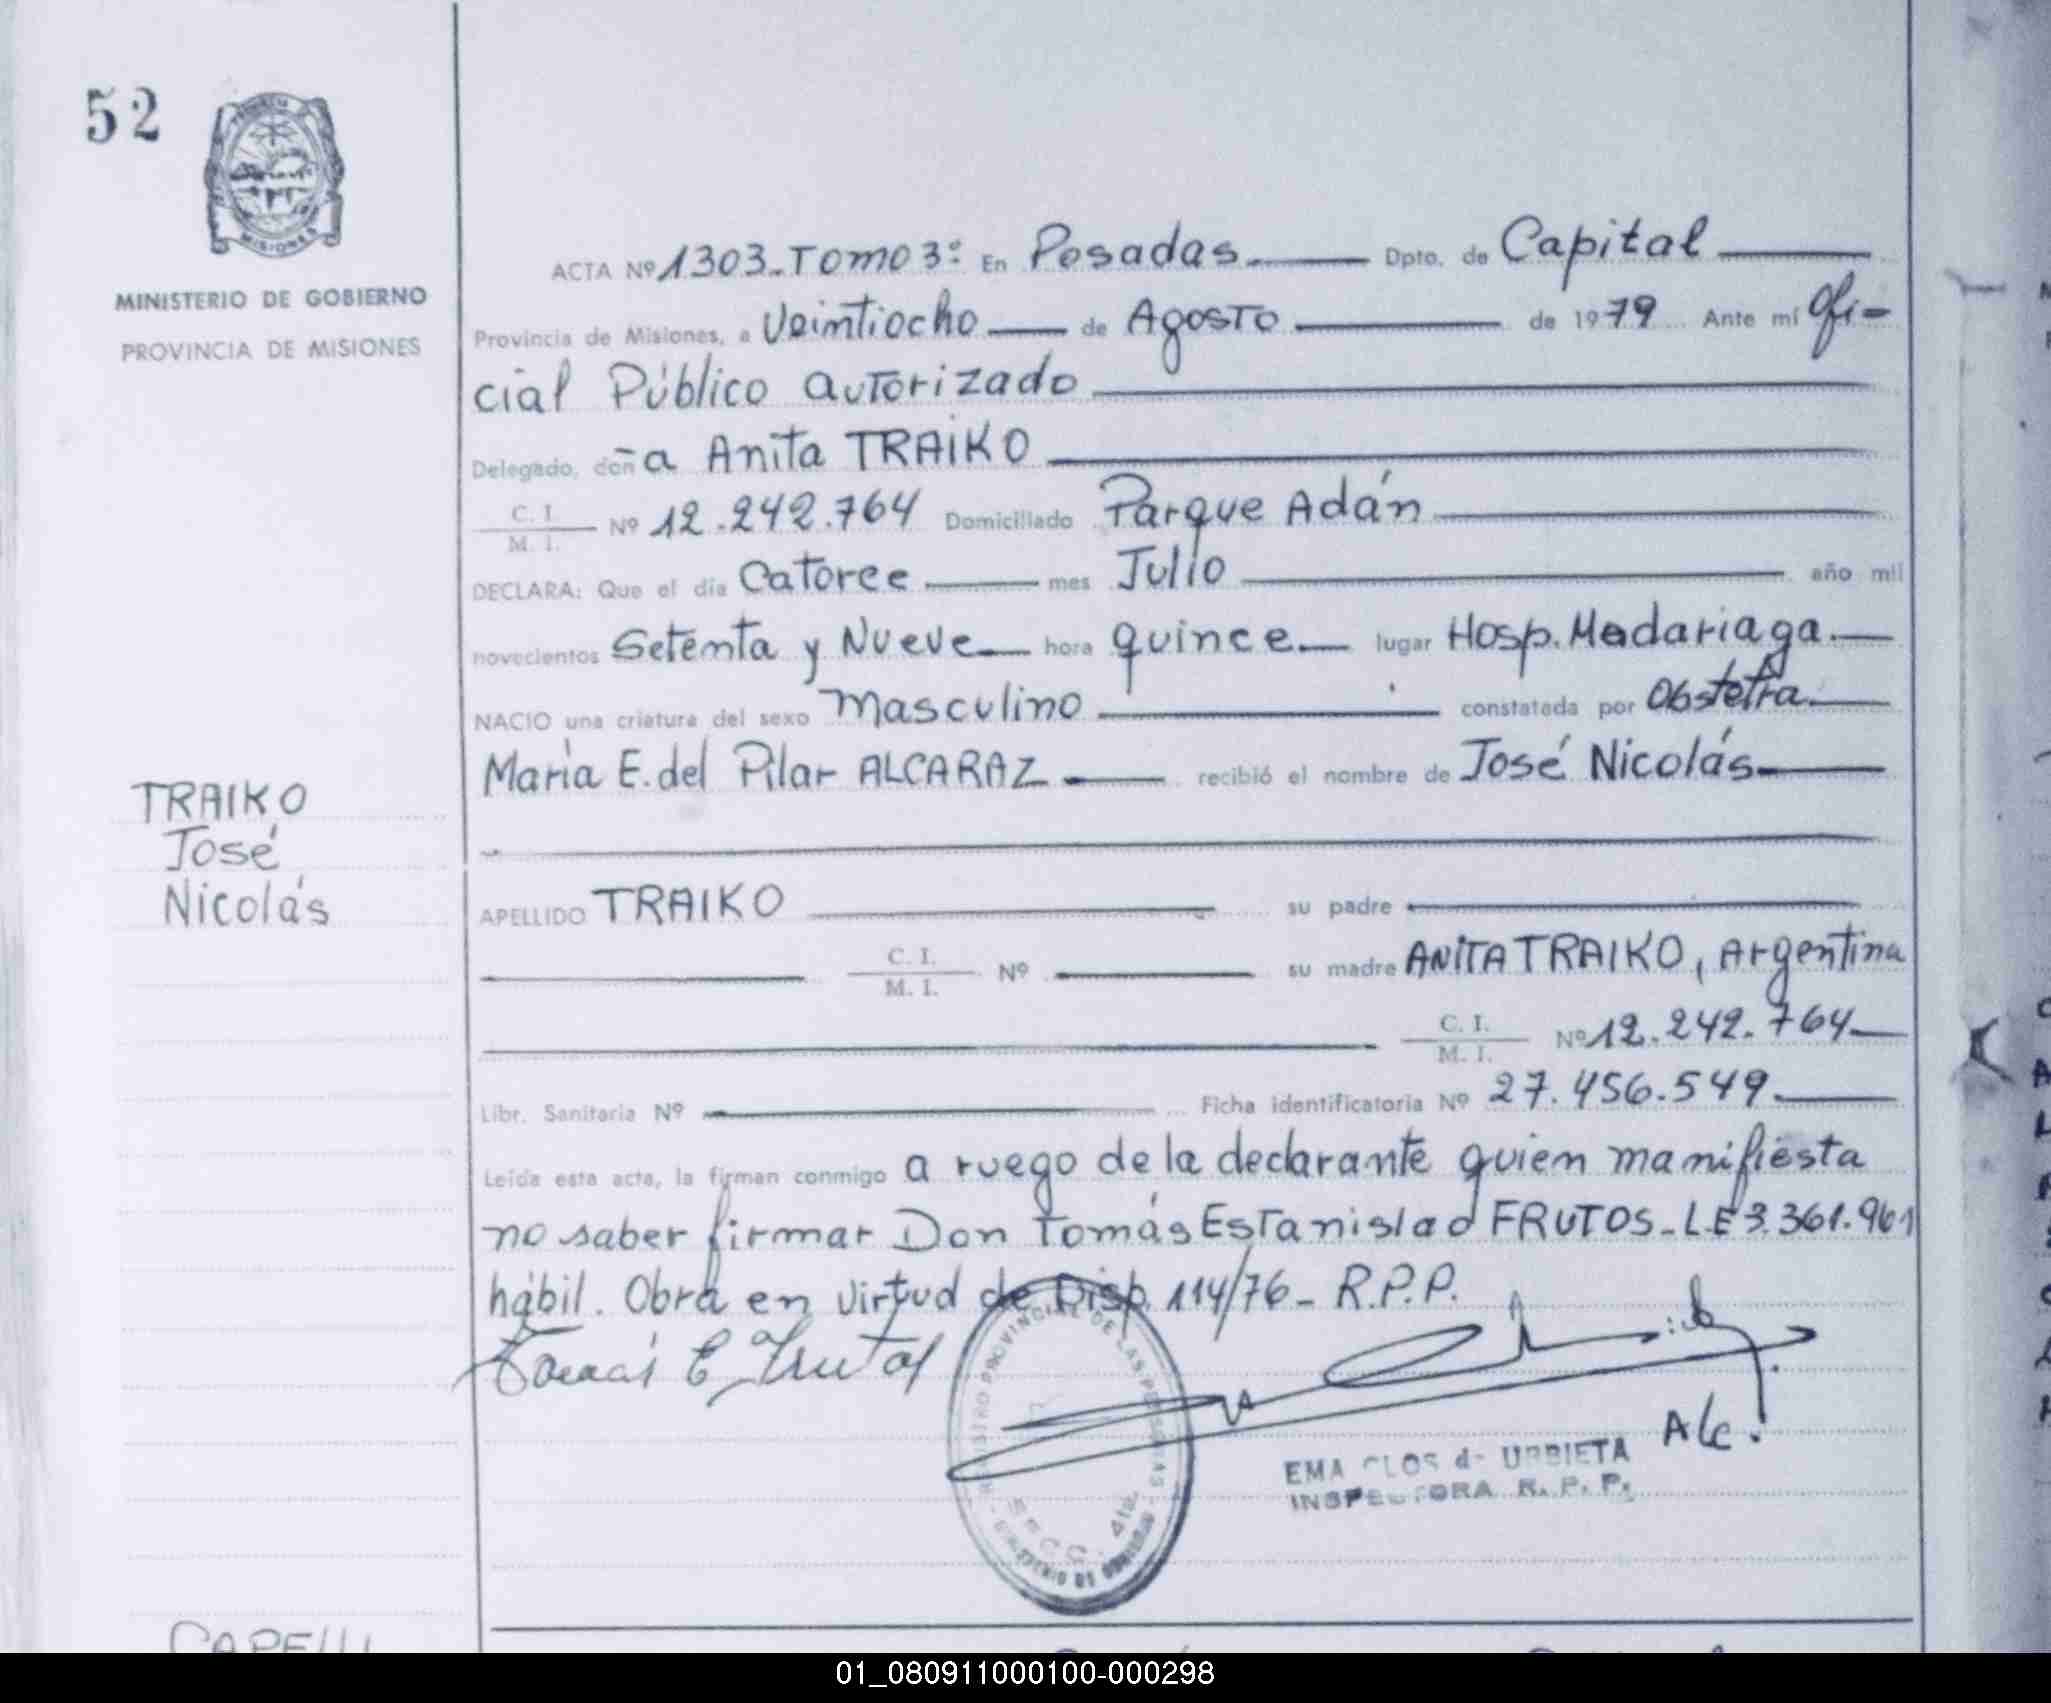 52
MISIONES
MINISTERIO DE GOBIERNO
PROVINCIA DE MISIONES
TRAIKO
José
Nicolás
ACTA Nº 1303-TOMO 3º En Posadas. Dpto. de Capital
Provincia de Misiones, a Veintiocho de Agosto de 1979 Ante mí Ofi-
cial Público autorizado
Delegado, doña Anita TRAIKO
C. I. / M. I. Nº 12.242.764 Domiciliado Parque Adán
DECLARA: Que el día Catorce mes Julio año mil
novecientos Setenta y Nueve hora quince. lugar Hosp. Madariaga.
NACIO una criatura del sexo masculino constatada por Obstetra
María E. del Pilar ALCARAZ recibió el nombre de José Nicolás
APELLIDO TRAIKO su padre
C. I. / M. I. Nº su madre ANITA TRAIKO, Argentina
C. I. / M. I. Nº 12.242.764
Libr. Sanitaria Nº Ficha identificatoria Nº 27.456.549.
Leída esta acta, la firman conmigo a ruego de la declarante quien manifiesta
no saber firmar Don Tomás Estanislao FRUTOS - L.E 3.361.961
hábil. Obra en virtud de Disp. 114/76 - R.P.P.
Tomás E. Frutos
REGISTRO PROVINCIAL DE LAS PERSONAS
Alc.
EMA CLOS de URBIETA
INSPECTORA R. P. P.
CAPELLI
01_080911000100-000298